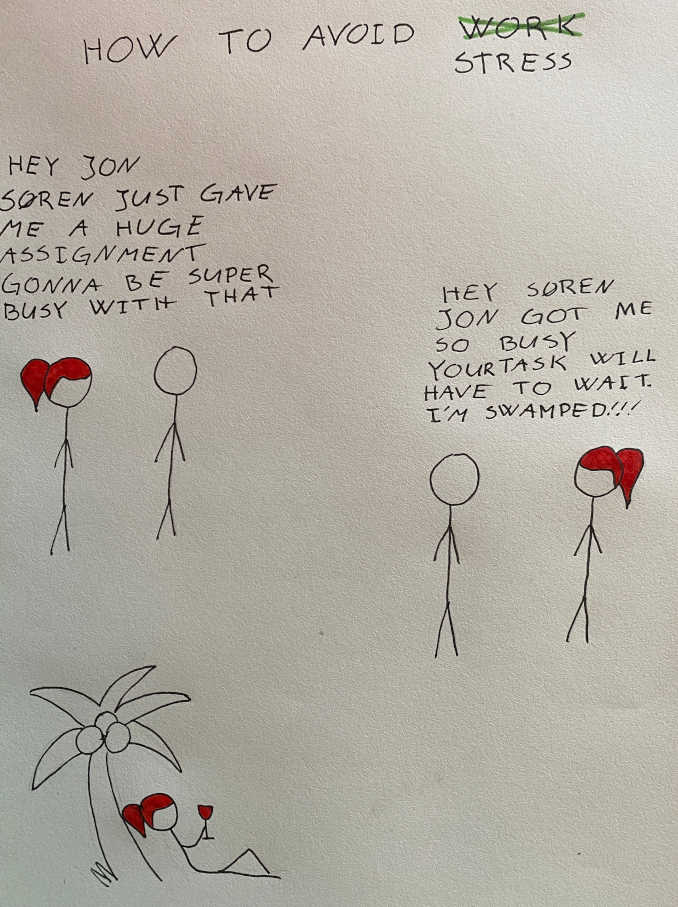 HOW TO AVOID WORK
STRESS
HEY JON
SØREN JUST GAVE
ME A HUGE
ASSIGNMENT
GONNA BE SUPER
BUSY WITH THAT
HEY SØREN
JON GOT ME
SO BUSY
YOUR TASK WILL
HAVE TO WAIT.
I'M SWAMPED!!!